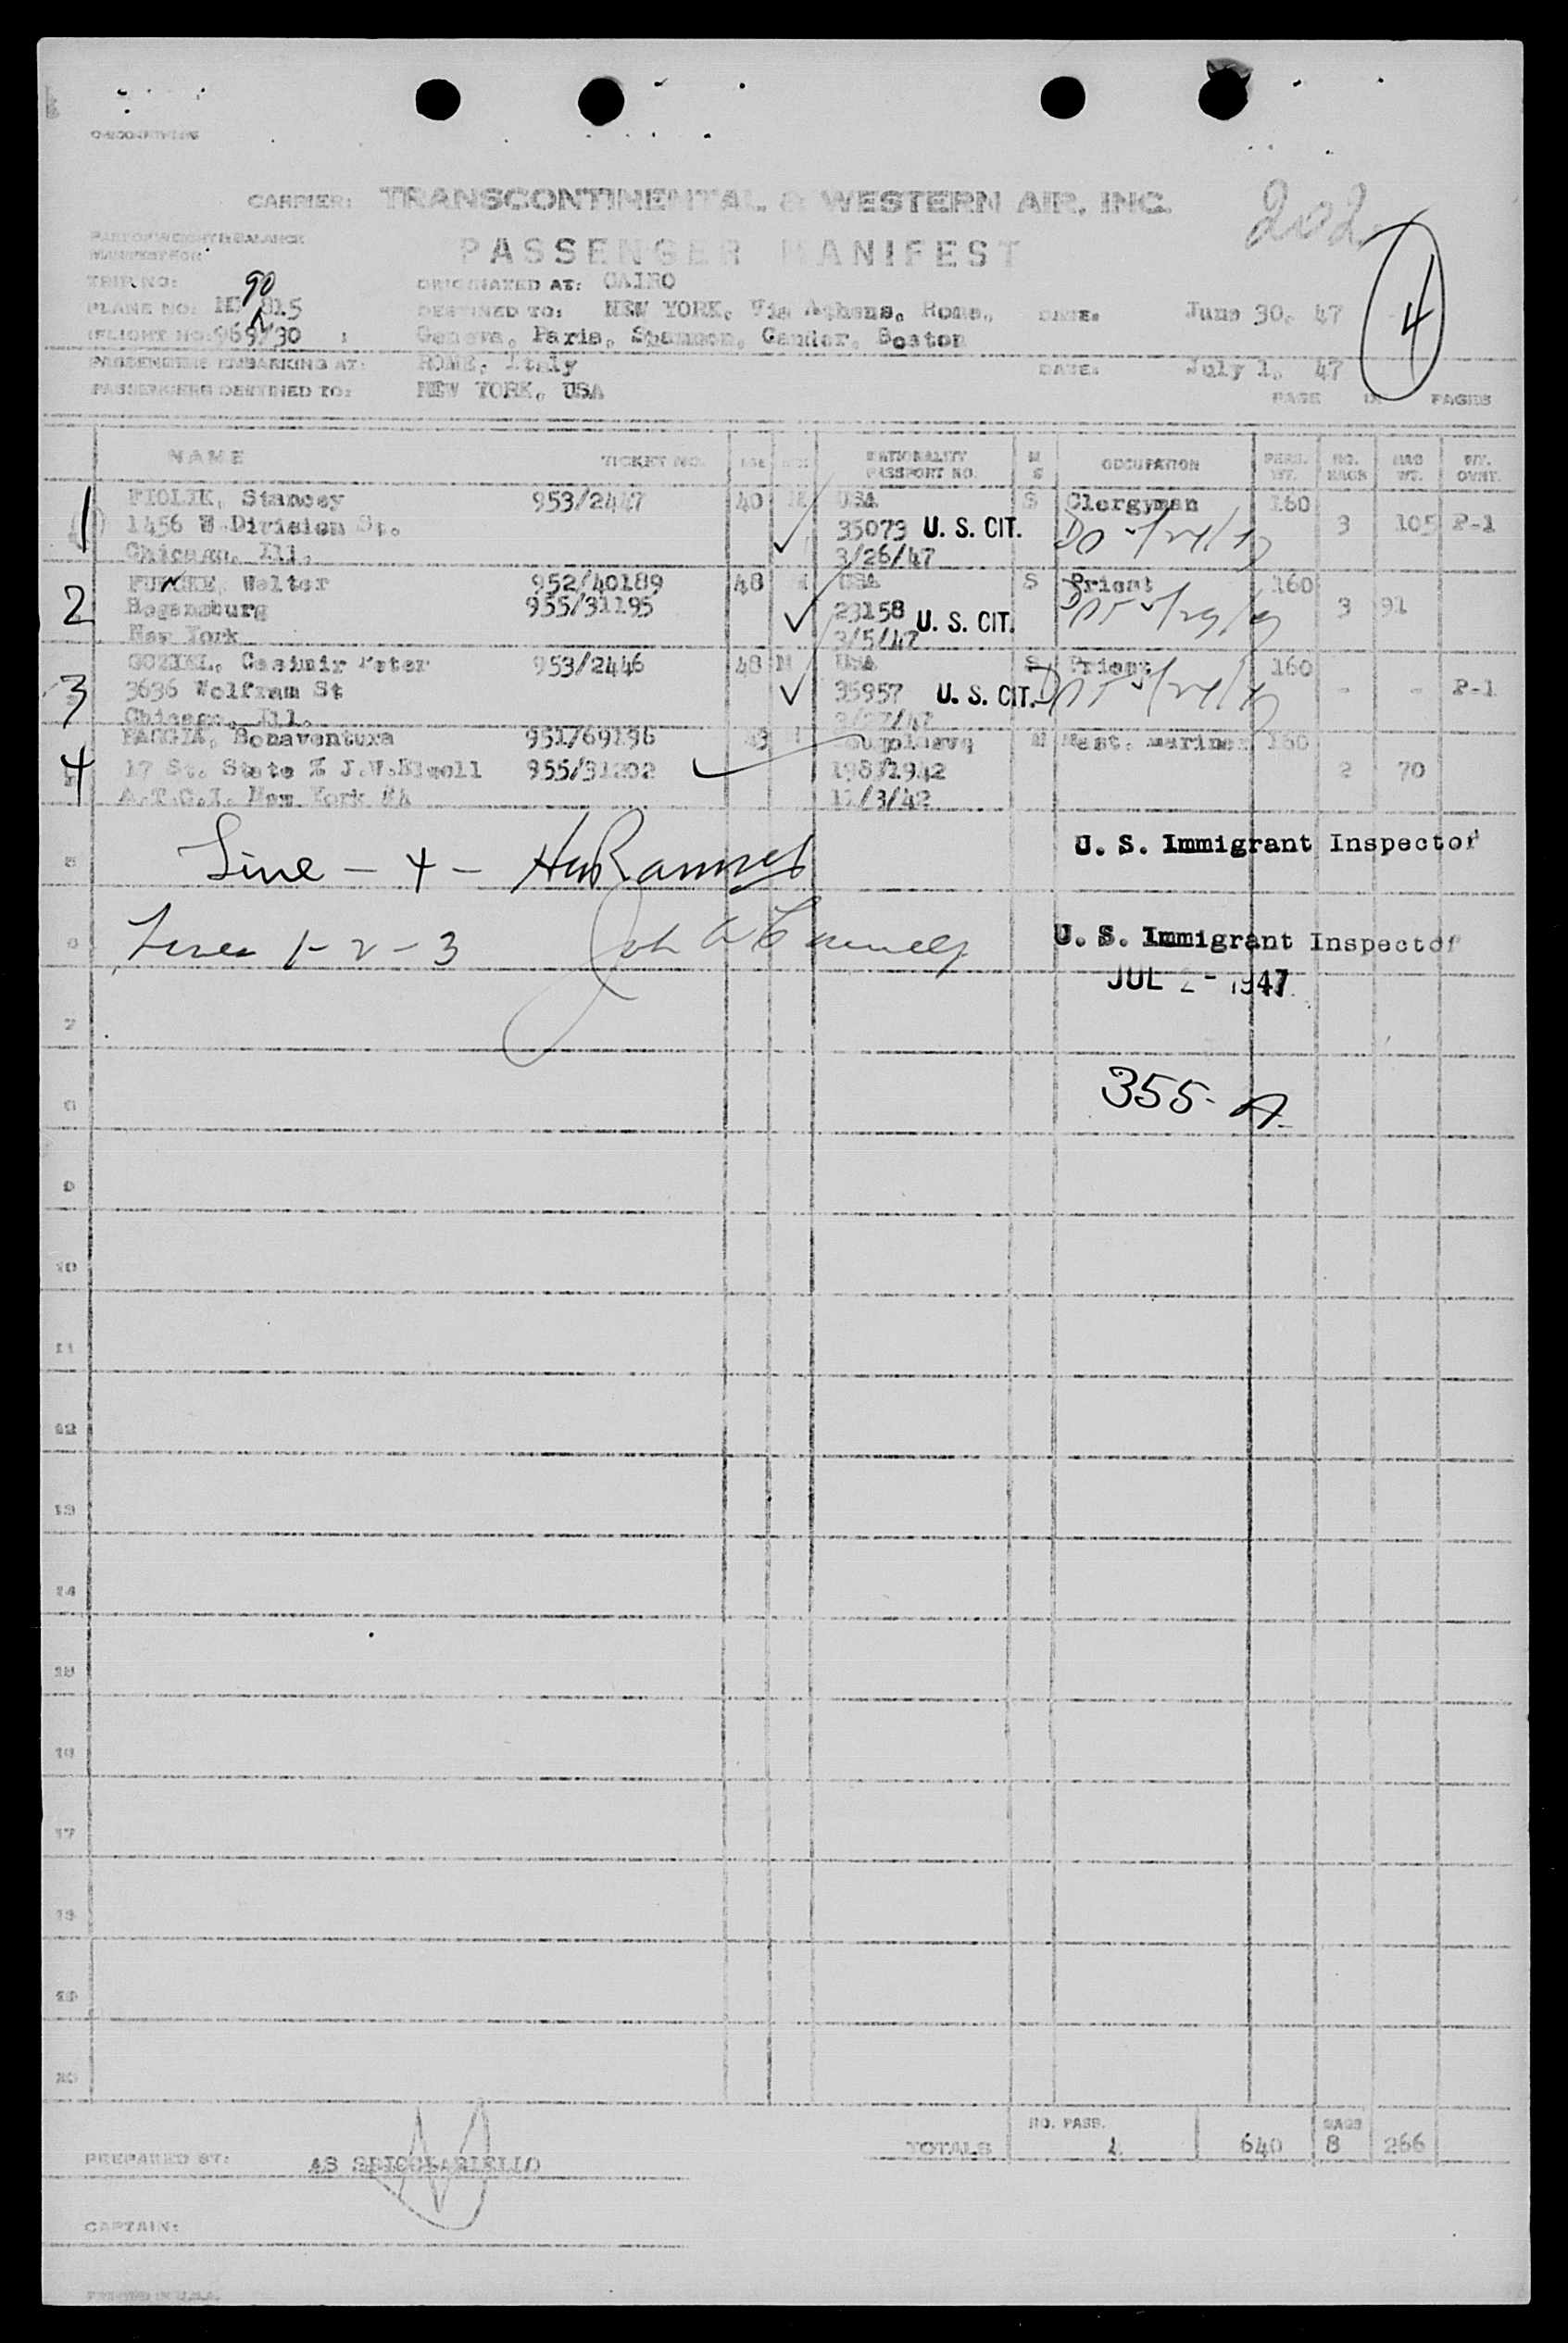 202
CARRIER: TRANSCONTINENTAL & WESTERN AIR, INC.
PART OF WEIGHT & BALANCE
MANIFEST FOR
PASSENGER MANIFEST
4
TRIP NO: 90
ORIGINATED AT: CAIRO
PLANE NO: 815
DESTINED TO: NEW YORK, Via Athens, Rome, DATE: June 30, 47
FLIGHT NO: 969/30
Geneva, Paris, Shannon, Gander, Boston
PASSENGERS EMBARKING AT: ROME, Italy DATE: July 1, 47
PASSENGERS DESTINED TO: NEW YORK, USA PAGE PAGES
NAME TICKET NO. AGE SEX NATIONALITY PASSPORT NO. M S OCCUPATION PERS. WT. NO. BAGS BAG WT. WT. OVNT.
1 FIOLIK, Stancey 953/2447 40 M USA S Clergyman 160
1456 W Division St. 35073 U. S. CIT. 3 105 P-1
Chicago, Ill. 3/26/47
2 Walter 952/40189 48 M USA S Priest 160
955/31195 23158 U. S. CIT. 3 91
New York 3/5/47
3 Casimir Peter 953/2446 48 M USA S Priest 160
3636 Wolfram St 35957 U. S. CIT. - - P-1
Chicago, Ill.
4 FAGGIA, Bonaventura M mariner 160
17 St. State % 955/31202 198/1942 2 70
New York 11/3/42
5 Line - 4 - U. S. Immigrant Inspector
6 Lines 1-2-3 John U. S. Immigrant Inspector
JUL 2 - 1947
7
8 355- A
9
10
11
12
13
14
15
16
17
18
19
20
NO. PASS. BAGS
TOTALS 640 8 266
PREPARED BY:
CAPTAIN:
PRINTED IN U.S.A.